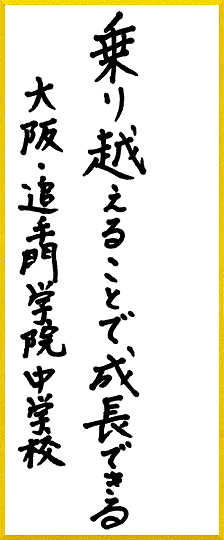 乗り越えることで、成長できる
大阪・追手門学院中学校